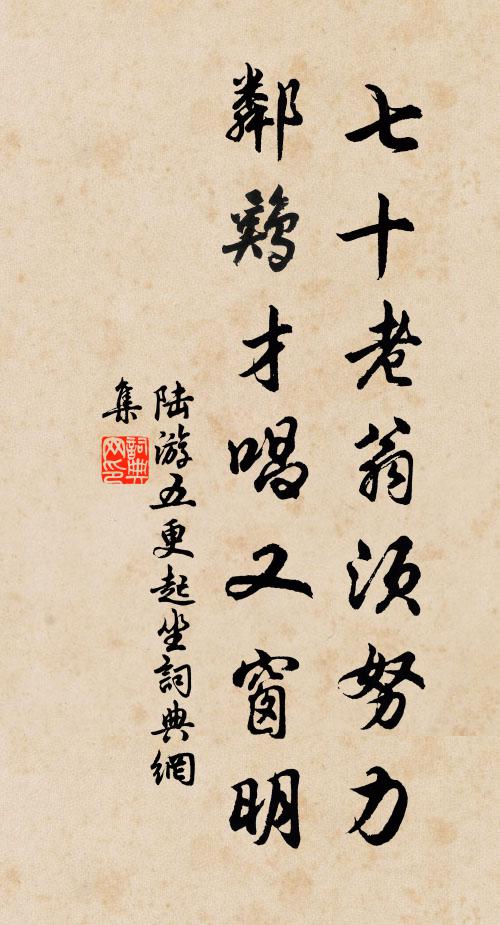 七十老翁须努力
鄰鷄才唱又窗明
陆游五更起坐詞典網
集
詞典
网印